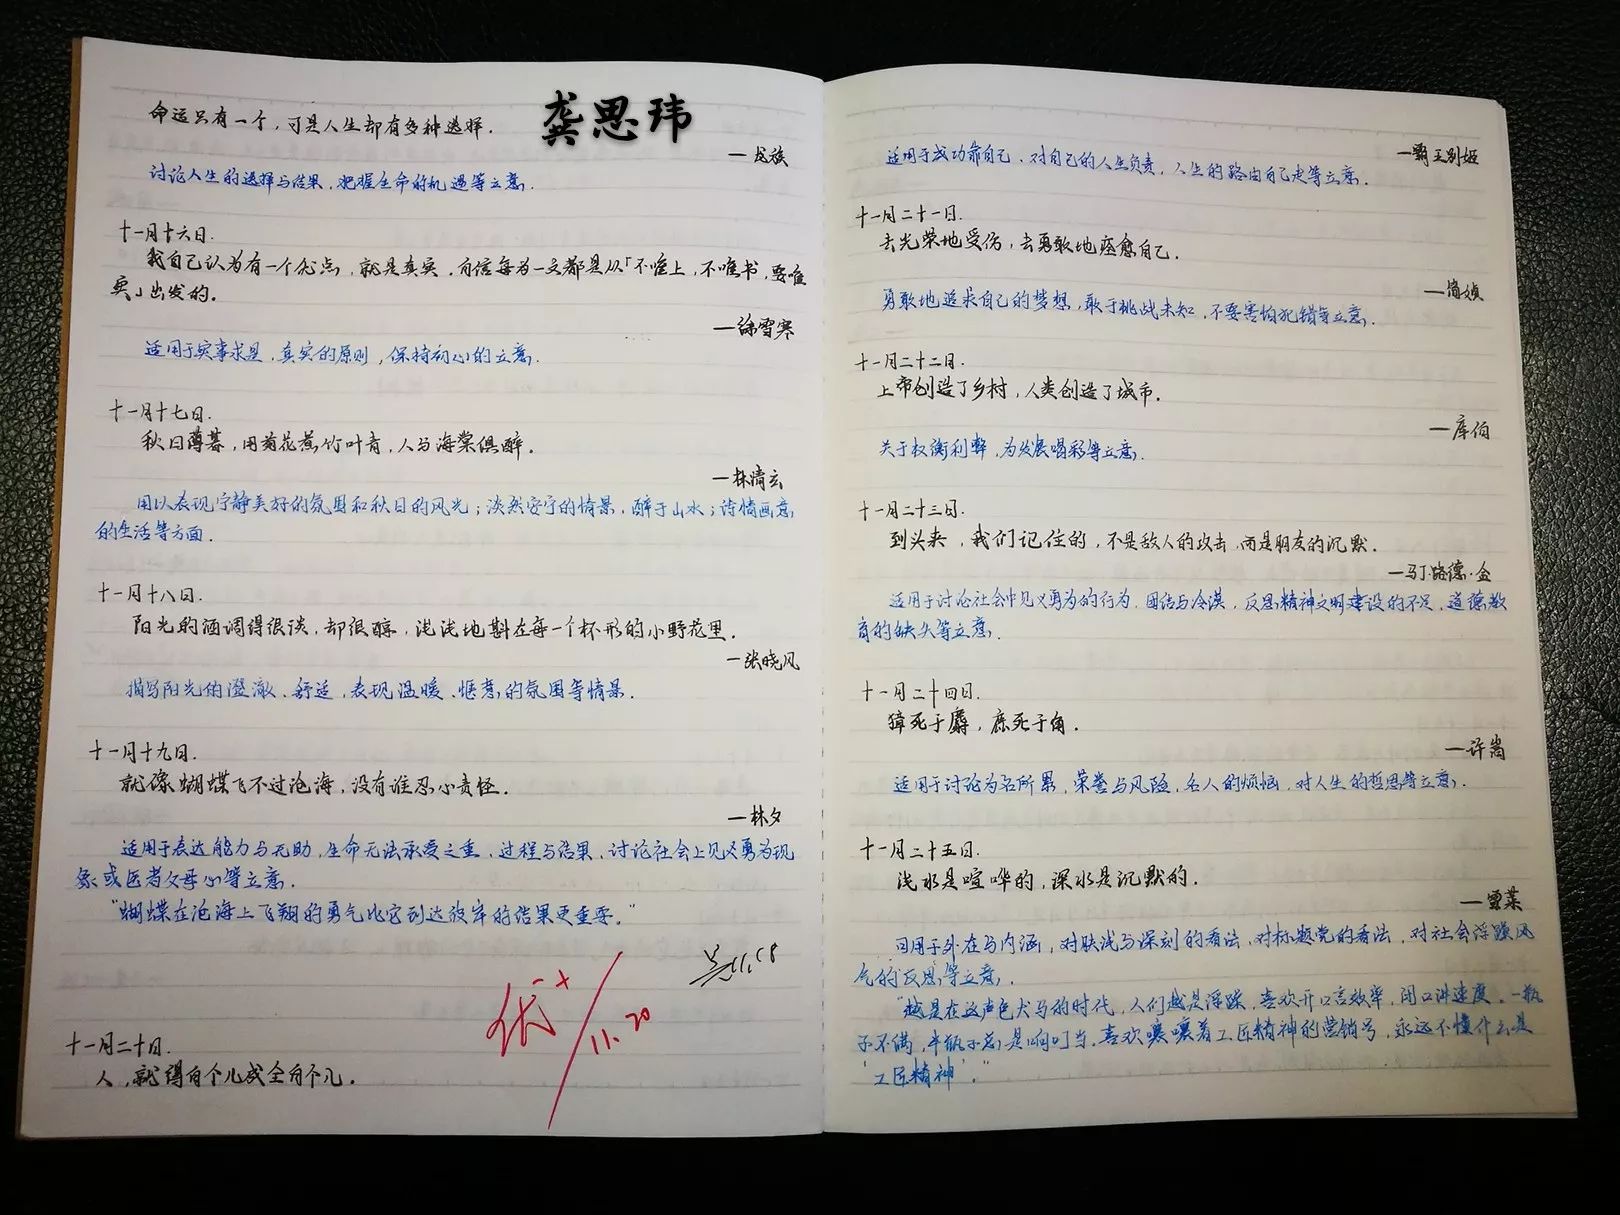 龚思玮
命运只有一个，可是人生却有多种选择．
—龙族
讨论人生的选择与结果，把握生命的机遇等立意．
十一月十六日．
我自己认为有一个优点，就是真实．自信每为一文都是从「不唯上，不唯书，要唯
实」出发的．
—徐雪寒
适用于实事求是，真实的原则，保持初心的立意．
十一月十七日．
秋日薄暮，用菊花煮竹叶青，人与海棠俱醉．
—林清玄
用以表现宁静美好的氛围和秋日的风光；淡然安宁的情景，醉于山水；诗情画意
的生活等方面．
十一月十八日．
阳光的酒调得很淡，却很醇，浅浅地斟在每一个杯形的小野花里．
—张晓风
描写阳光的澄澈、舒适，表现温暖、惬意的氛围等情景．
十一月十九日．
就像蝴蝶飞不过沧海，没有谁忍心责怪．
—林夕
适用于表达能力与无助，生命无法承受之重，过程与结果，讨论社会上见义勇为现
象或医者父母心等立意．
“蝴蝶在沧海上飞翔的勇气比它到达彼岸的结果更重要．”
11.18
优-+
11.20
十一月二十日．
人，就得自个儿成全自个儿．
—霸王别姬
适用于成功靠自己，对自己的人生负责，人生的路由自己走等立意．
十一月二十一日．
去光荣地受伤，去勇敢地痊愈自己．
—简媜
勇敢地追求自己的梦想，敢于挑战未知，不要害怕犯错等立意．
十一月二十二日．
上帝创造了乡村，人类创造了城市．
—库伯
关于权衡利弊，为发展喝彩等立意．
十一月二十三日．
到头来，我们记住的，不是敌人的攻击，而是朋友的沉默．
—马丁·路德·金
适用于讨论社会中见义勇为的行为，团结与冷漠，反思精神文明建设的不足，道德教
育的缺失等立意．
十一月二十四日．
獐死于麝，鹿死于角．
—许嵩
适用于讨论为名所累，荣誉与风险，名人的烦恼，对人生的哲思等立意．
十一月二十五日．
浅水是喧哗的，深水是沉默的．
—雪莱
可用于外在与内涵，对肤浅与深刻的看法，对标题党的看法，对社会浮躁风
气的反思等立意．
“越是在这声色犬马的时代，人们越是浮躁，喜欢开口言效率，闭口讲速度．一瓶
子不满，半瓶子总是响叮当．喜欢嚷嚷着工匠精神的营销号，永远不懂什么是
‘工匠精神’．”